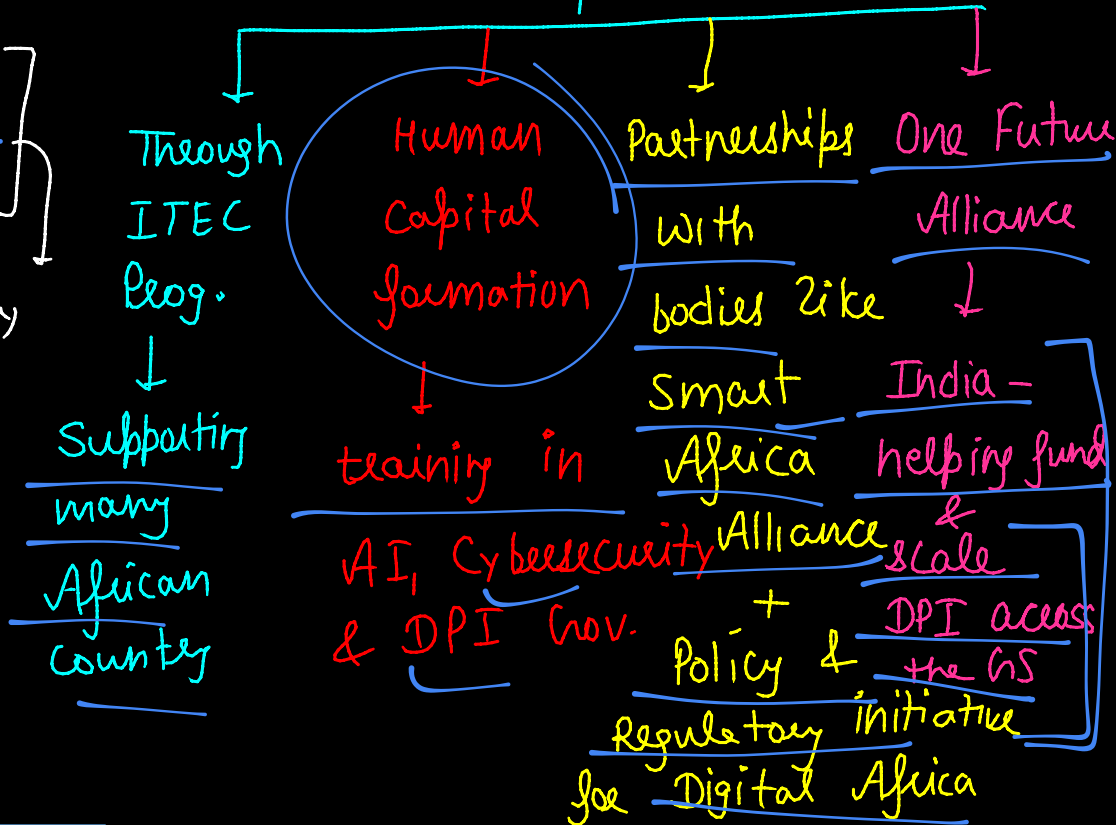 Through
ITEC
Prog.
Supporting
many
African
country
Human
Capital
formation
training in
AI, Cybersecurity
& DPI Gov.
Partnerships
with
bodies like
Smart
Africa
Alliance
+
Policy &
Regulatory initiative
for Digital Africa
One Future
Alliance
India -
helping fund
&
scale
DPI across
the GS